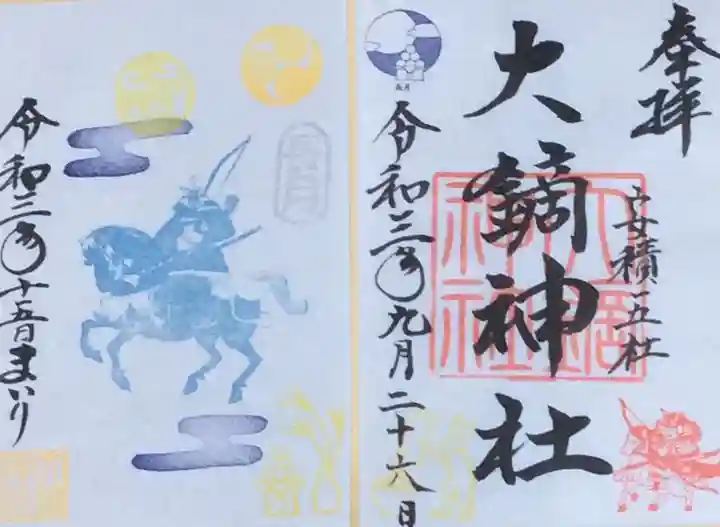 奉拝
安積三五社
大鏑神社
令和三年九月二十六日
長月
令和三年十五日まいり